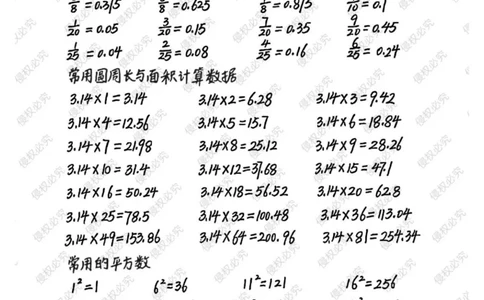 3/8 = 0.375 5/8 = 0.625 7/8 = 0.875 1/10 = 0.1
1/20 = 0.05 3/20 = 0.15 7/20 = 0.35 9/20 = 0.45
1/25 = 0.04 2/25 = 0.08 4/25 = 0.16 6/25 = 0.24
常用圆周长与面积计算数据
3.14×1=3.14 3.14×2=6.28 3.14×3=9.42
3.14×4=12.56 3.14×5=15.7 3.14×6=18.84
3.14×7=21.98 3.14×8=25.12 3.14×9=28.26
3.14×10=31.4 3.14×12=37.68 3.14×15=47.1
3.14×16=50.24 3.14×18=56.52 3.14×20=62.8
3.14×25=78.5 3.14×32=100.48 3.14×36=113.04
3.14×49=153.86 3.14×64=200.96 3.14×81=254.34
常用的平方数
1²=1 6²=36 11²=121 16²=256
侵权必究